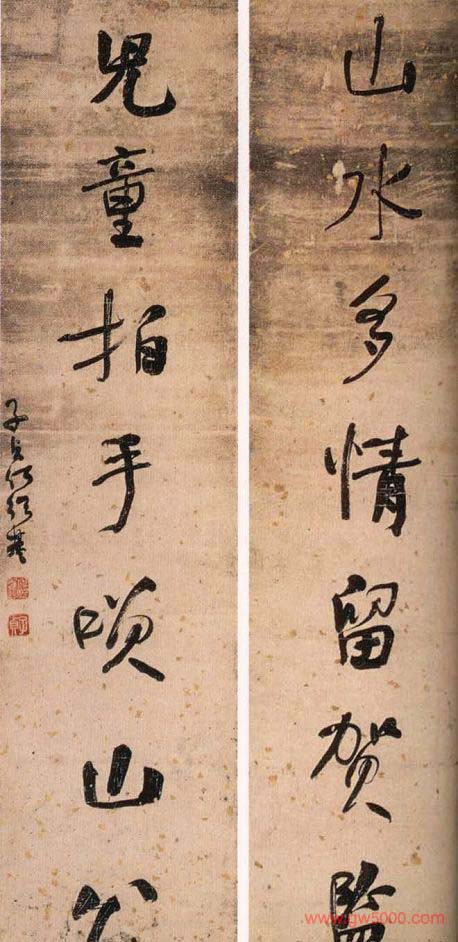 山水多情留賀監
兒童拍手喚山公
子貞何紹基
www.gw5000.com